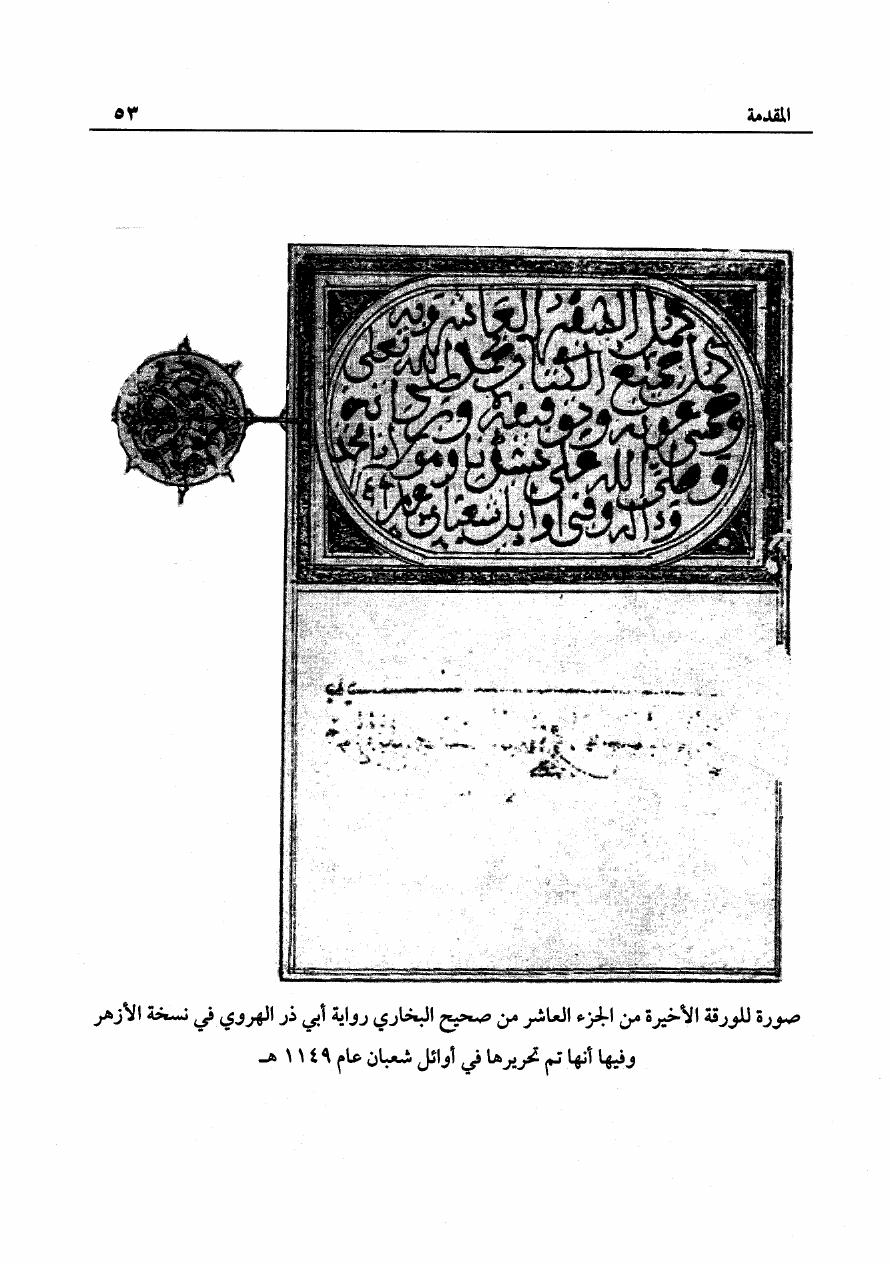 المقدمة ٥٣
كمل السفر العاشر وبه
كمل جميع الكتاب بحمد الله تعلى
وحسن عونه وتوفيقه
وصلى الله على ومولانا محمد
وءاله وفي أوايل شعبان عام ١١٤٩
صورة للورقة الأخيرة من الجزء العاشر من صحيح البخاري رواية أبي ذر الهروي في نسخة الأزهر
وفيها أنها تم تحريرها في أوائل شعبان عام ١١٤٩ هـ